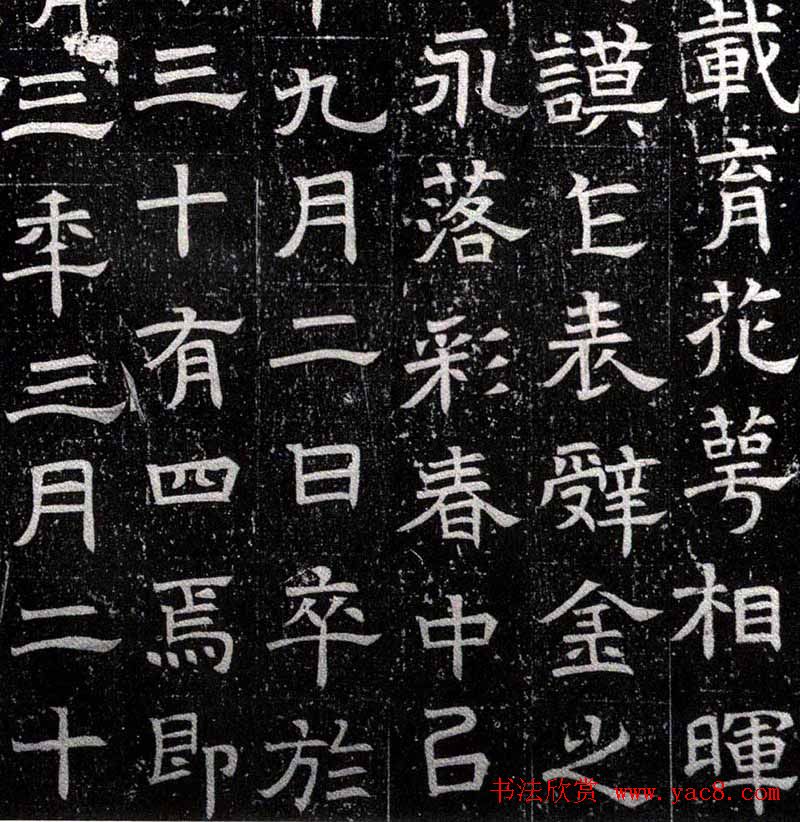 載育花萼相暉
謨乍表辤金之
永落彩春中㠯
九月二日卒於
三十有四焉即
月三年三月二十
书法欣赏 www.yac8.com